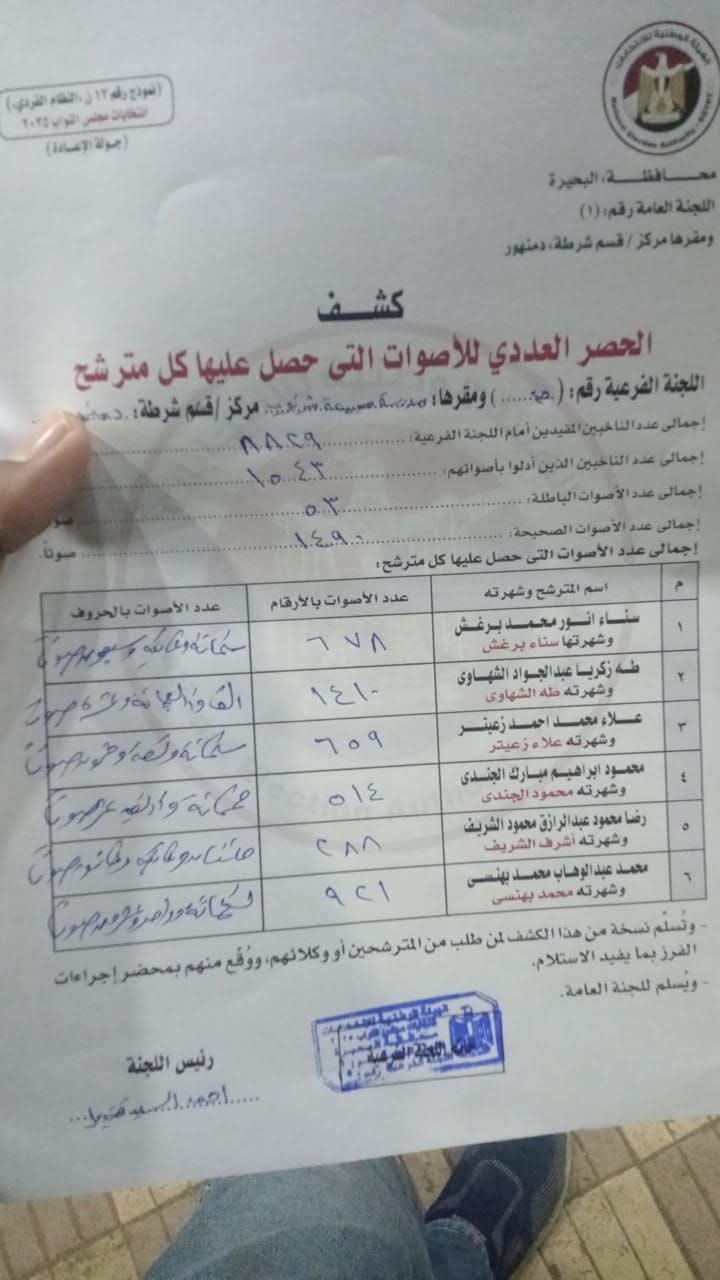 الهيئة الوطنية للانتخابات
National Election Authority - EGYPT
(نموذج رقم ١٢ ن، النظام الفردي)
انتخابات مجلس النواب ٢٠٢٥
(جولة الإعادة)
محافظة: البحيرة
اللجنة العامة رقم: (١)
ومقرها مركز / قسم شرطة: دمنهور
كشف
الحصر العددي للأصوات التى حصل عليها كل مترشح
اللجنة الفرعية رقم: ( ) ومقرها: مركز / قسم شرطة:
إجمالى عدد الناخبين المقيدين أمام اللجنة الفرعية: ٨٨٢٩
إجمالى عدد الناخبين الذين أدلوا بأصواتهم: ١٥٤٣
إجمالى عدد الأصوات الباطلة: ٥٣
إجمالى عدد الأصوات الصحيحة: ١٤٩٠ صوتاً.
إجمالى عدد الأصوات التى حصل عليها كل مترشح:
م اسم المترشح وشهرته عدد الأصوات بالأرقام عدد الأصوات بالحروف
١ سناء انور محمد برغش ٦٧٨ ستمائة وثمانية وسبعون صوتا
وشهرتها سناء برغش
٢ طه زكريا عبدالجواد الشهاوى
وشهرته طه الشهاوى
٣ علاء محمد احمد زعيتر ٦٥٩ ستمائة وتسعة وخمسون صوتا
وشهرته علاء زعيتر
٤ محمود ابراهيم مبارك الجندى ٥١٤ خمسمائة واربعة عشر صوتا
وشهرته محمود الجندى
٥ رضا محمود عبدالرازق محمود الشريف ٢٨٨ مائتان وثمانية وثمانون صوتا
وشهرته أشرف الشريف
٦ محمد عبدالوهاب محمد بهنسى ٩٢١ تسعمائة وواحد وعشرون صوتا
وشهرته محمد بهنسى
- وتُسلَّم نسخة من هذا الكشف لمن طلب من المترشحين أو وكلائهم، ووُقع منهم بمحضر إجراءات
الفرز بما يفيد الاستلام.
- ويُسلم للجنة العامة.
الهيئة الوطنية للانتخابات
اللجنة الفرعية
رئيس اللجنة
احمد السيد